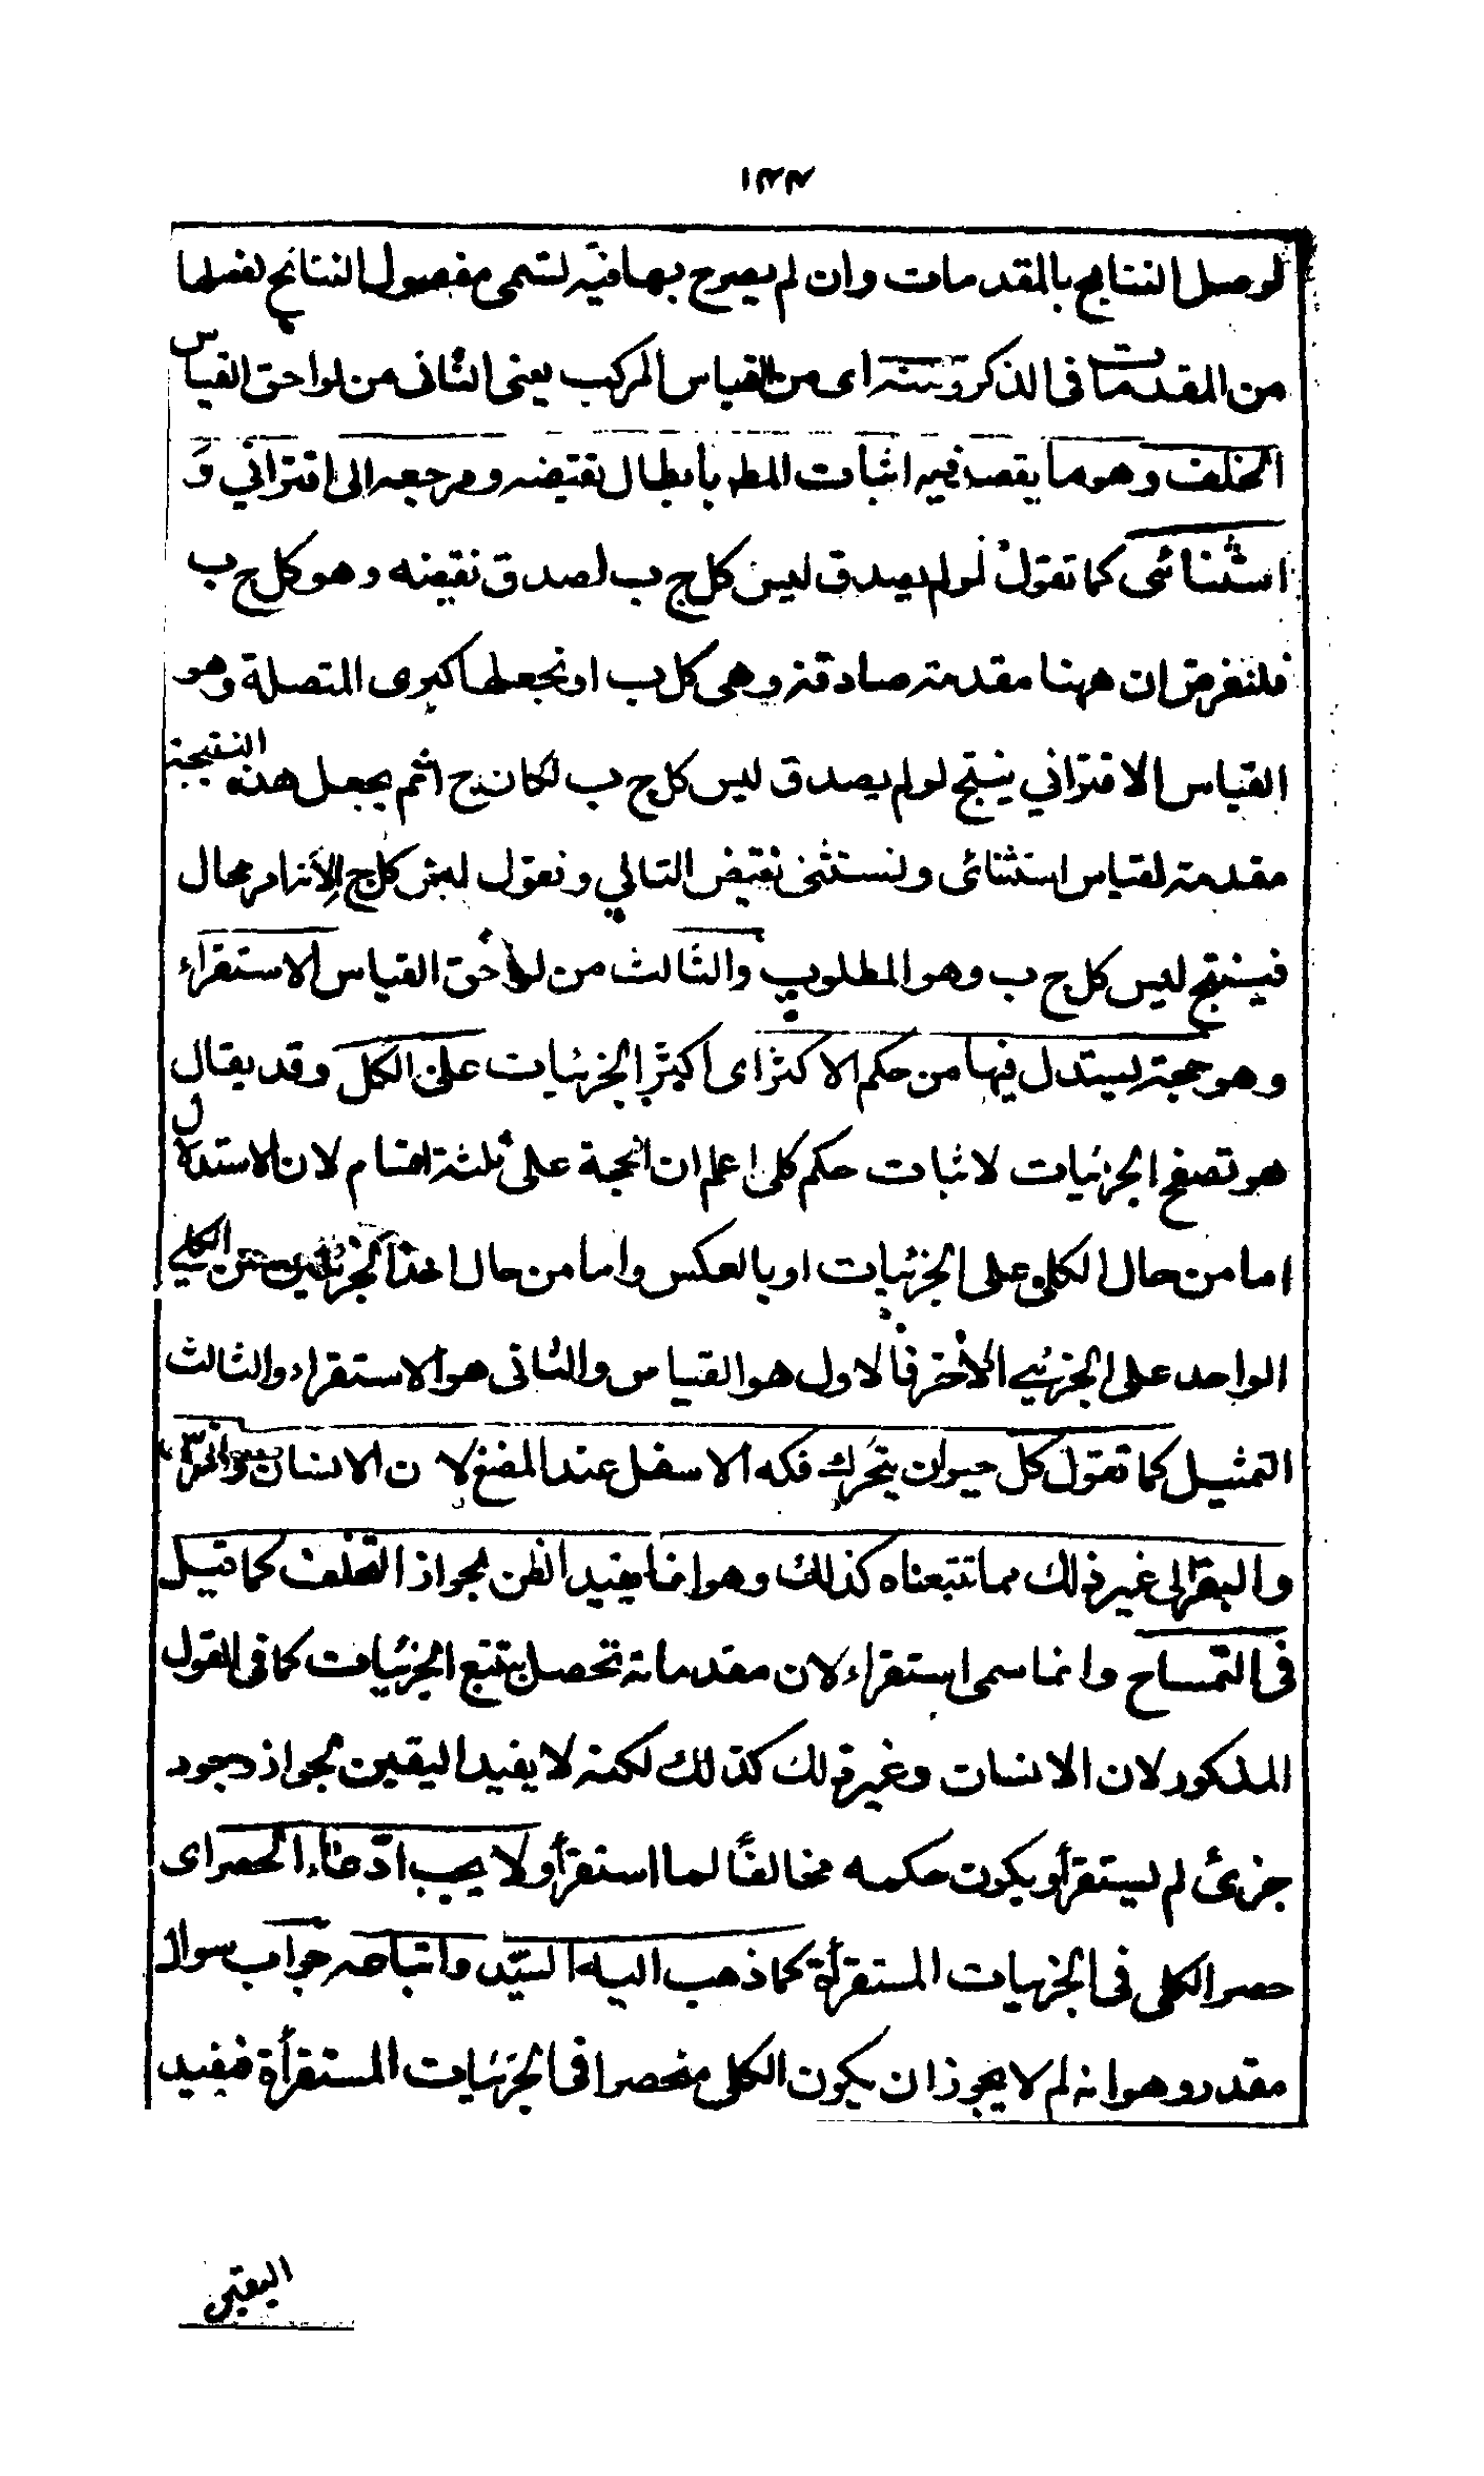 لوصل النتايج بالمقدمات وان لم يصرح بها فيه لسمى مفصول النتائج لفصلها
من المقدمات فى الذكر ومنه اى من القياس المركب يعنى الثانى من لواحق القياس
الخلف وهو ما يقصد فيه اثبات المط بابطال نقيضه ومرجعه الى اقترانى و
استثنائى كما تقول لو لم يصدق ليس كل ج ب لصدق نقيضه وهو كل ج ب
فلنفرض ان ههنا مقدمة صادقة وهى كل ب ا ونجعلها كبرى المتصلة وهو
القياس الاقترانى ينتج لو لم يصدق ليس كل ج ب لكان ج ا ثم يجعل هذه النتيجة
مقدمة لقياس استثنائى ونستثنى نقيض التالي ونقول ليس كل ج ا لانه امر محال
فينتج ليس كل ج ب وهو المطلوب والثالث من لواحق القياس الاستقراء
وهو حجة يستدل فيها من حكم الاكثر اى اكثر الجزئيات على الكل وقد يقال
هو تصفح الجزئيات لاثبات حكم كلى اعلم ان الحجة على ثلثة اقسام لان الاستدلال
اما من حال الكلى على الجزئيات او بالعكس واما من حال احد الجزئيين من الكلي
الواحد على الجزئي الاخر فالاول هو القياس والثانى هو الاستقراء والثالث
التمثيل كما تقول كل حيوان يتحرك فكه الاسفل عند المضغ لان الانسان والفرس
والبقر الى غير ذلك مما تتبعناه كذلك وهو انما يفيد الظن لجواز التخلف كما قيل
فى التمساح وانما سمى استقراء لان مقدماته تحصل بتتبع الجزئيات كما فى القول
المذكور لان الانسان وغير ذلك كذلك لكنه لا يفيد اليقين لجواز وجود
جزئ لم يستقرأ ويكون حكمه مخالفًا لما استقرأ ولا يجب ادّعاء الحصر اى
حصر الكلى فى الجزئيات المستقرأة كما ذهب اليه السيّد واتباعه جواب سوال
مقدر وهو انه لم لا يجوز ان يكون الكلى منحصرا فى الجزئيات المستقرأة فيفيد
اليقين